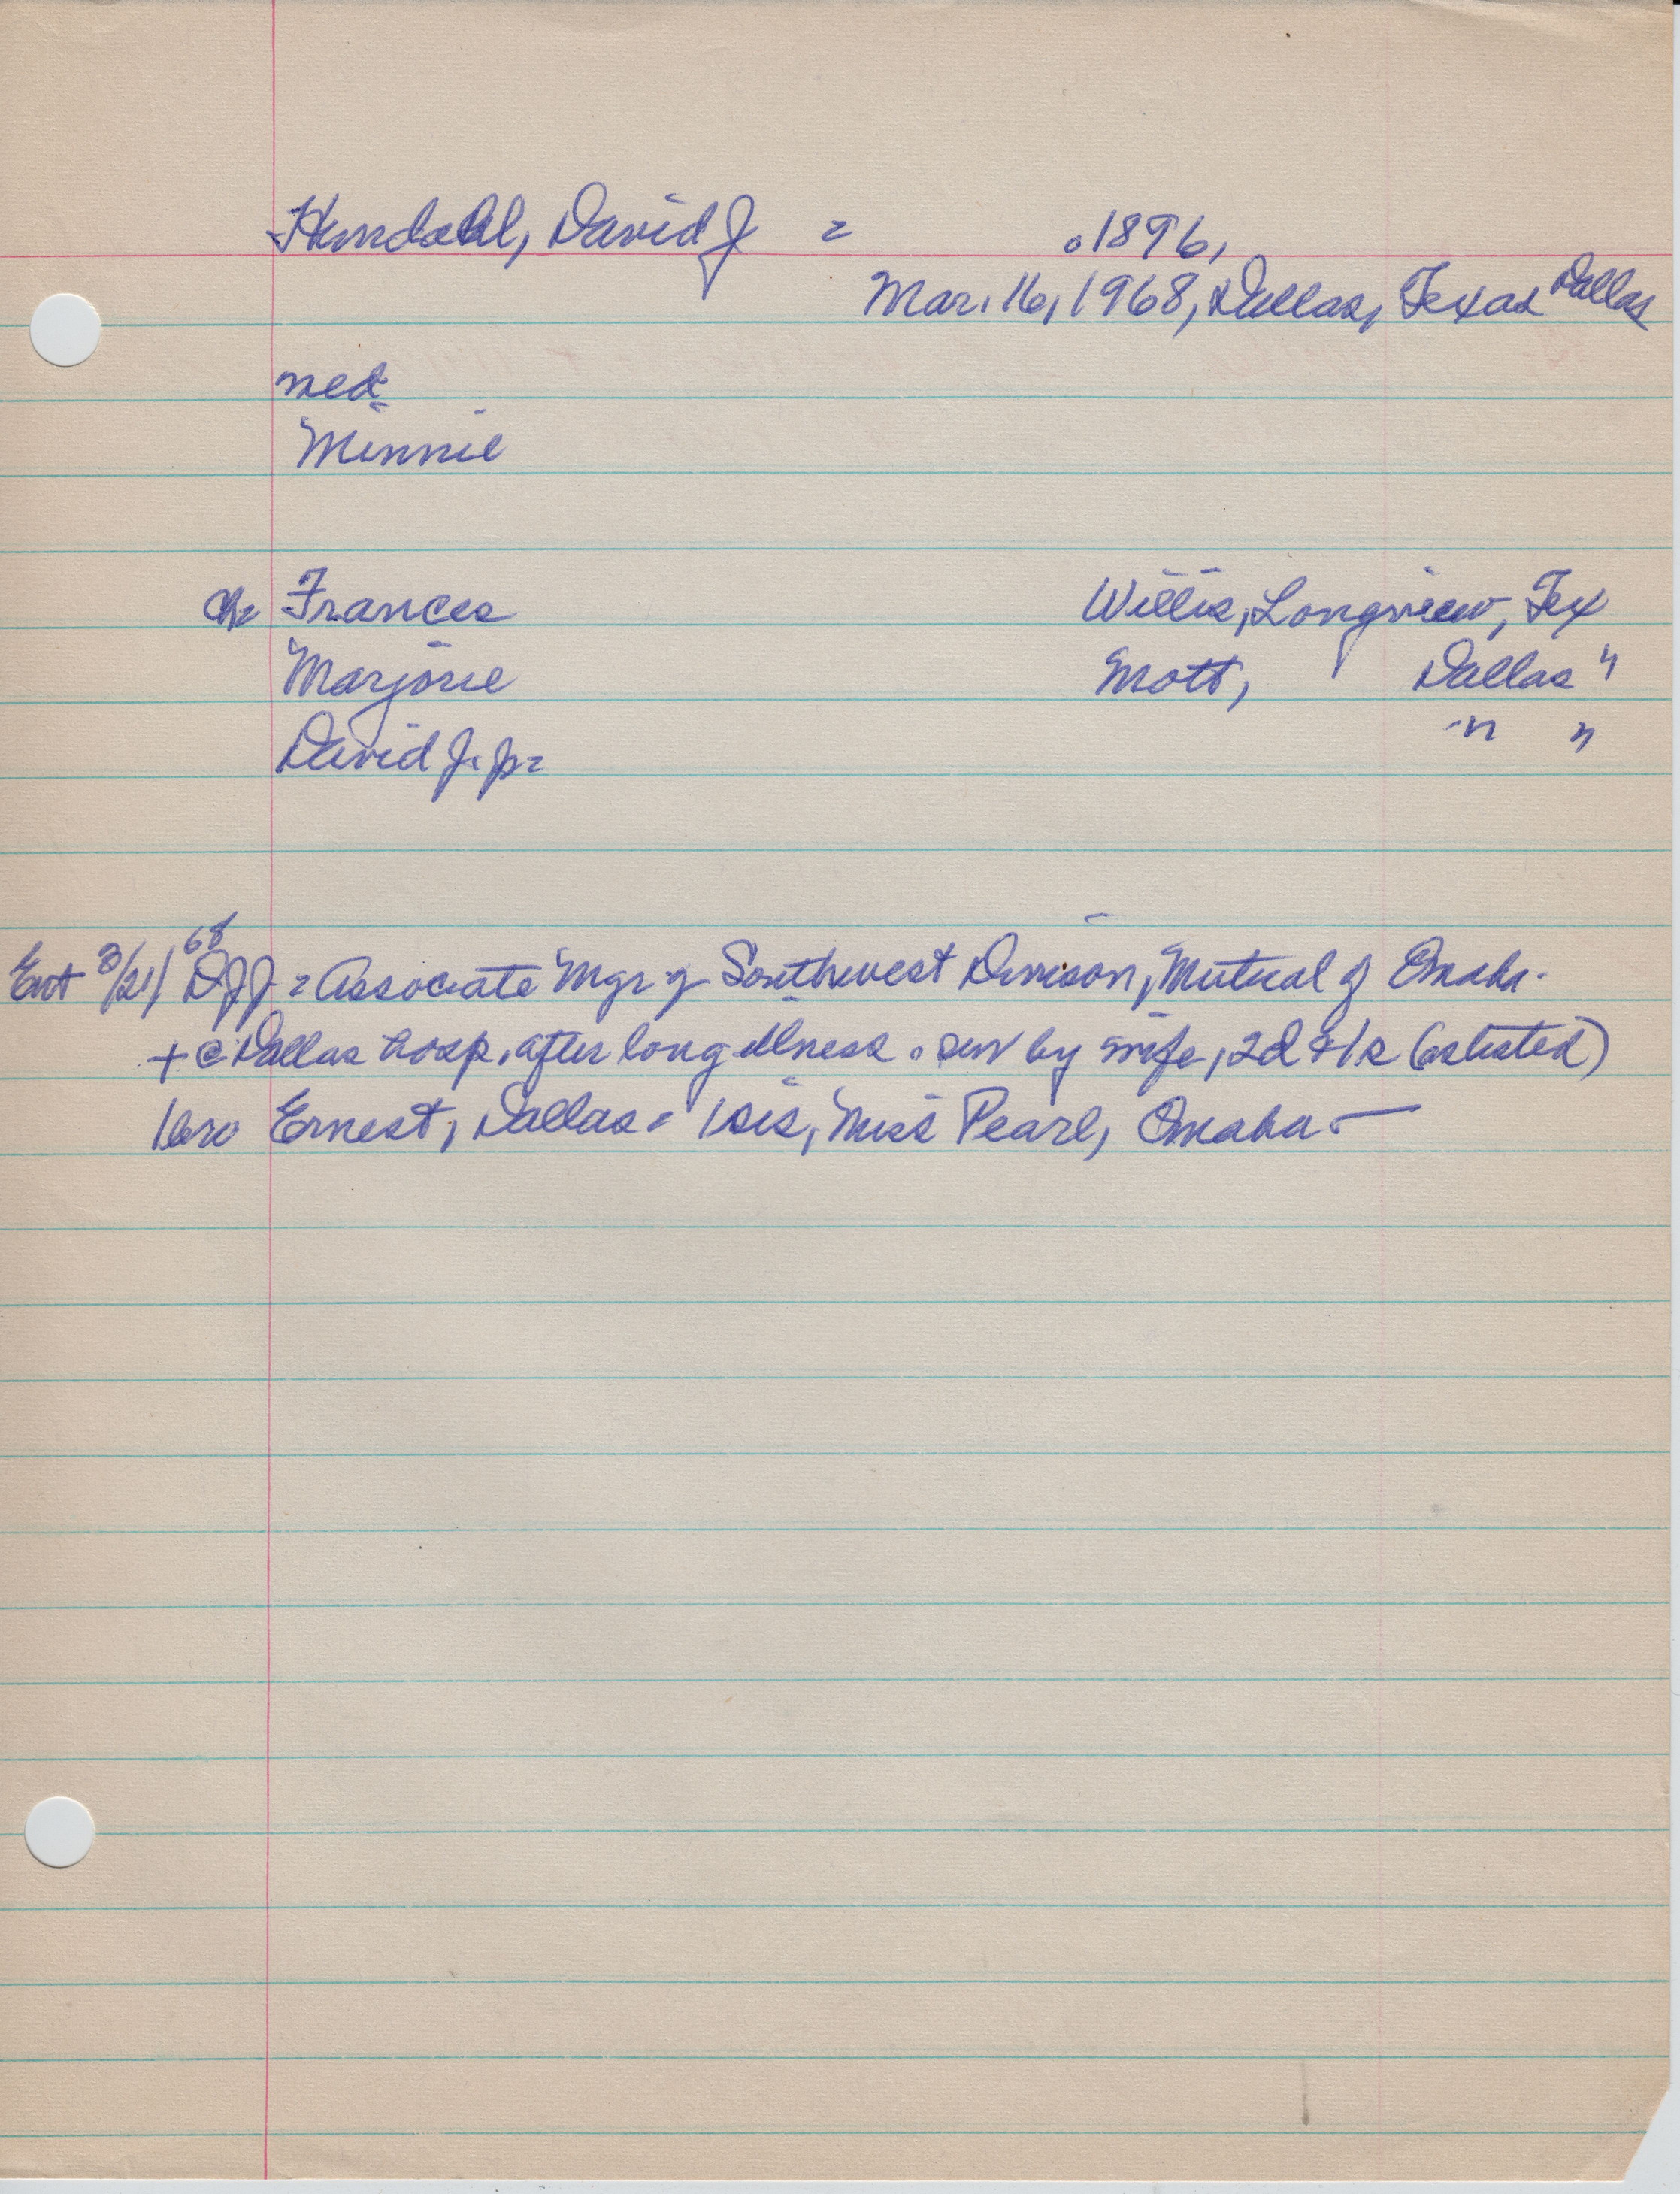 Hendahl, David J = .1896,
Mar. 16, 1968, Dallas, Texas Dallas
med
Minnie
ch Frances Willis, Longview, Tex
Marjorie Mott, Dallas "
David J. Jr = " "
Ent 3/21/68 DJJ = Associate Mgr of Southwest Division, Mutual of Omaha.
+ @ Dallas hosp. after long illness. surv by wife, 2d & 1s (as listed)
1 bro Ernest, Dallas = 1 sis, Miss Pearl, Omaha -